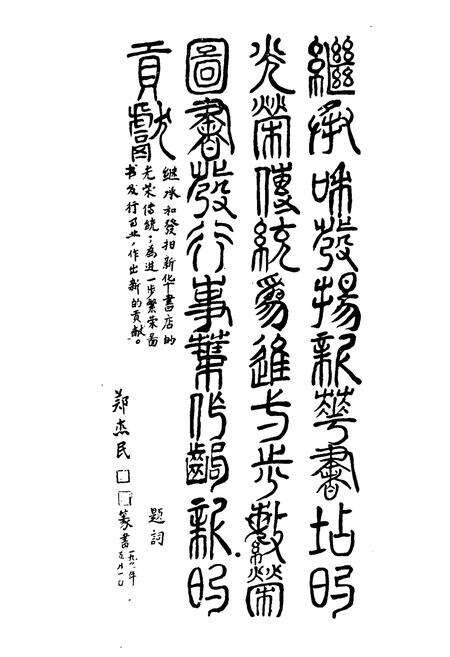 繼承咊發揚新華書坫的
光榮傳統爲進一步繁榮
圖書發行事業作出新的
貢獻
继承和發揚新华書店的
光荣傳統;為進一步繁荣啚
书发行事业,作出新的貢献。
题詞
郑杰民 篆書